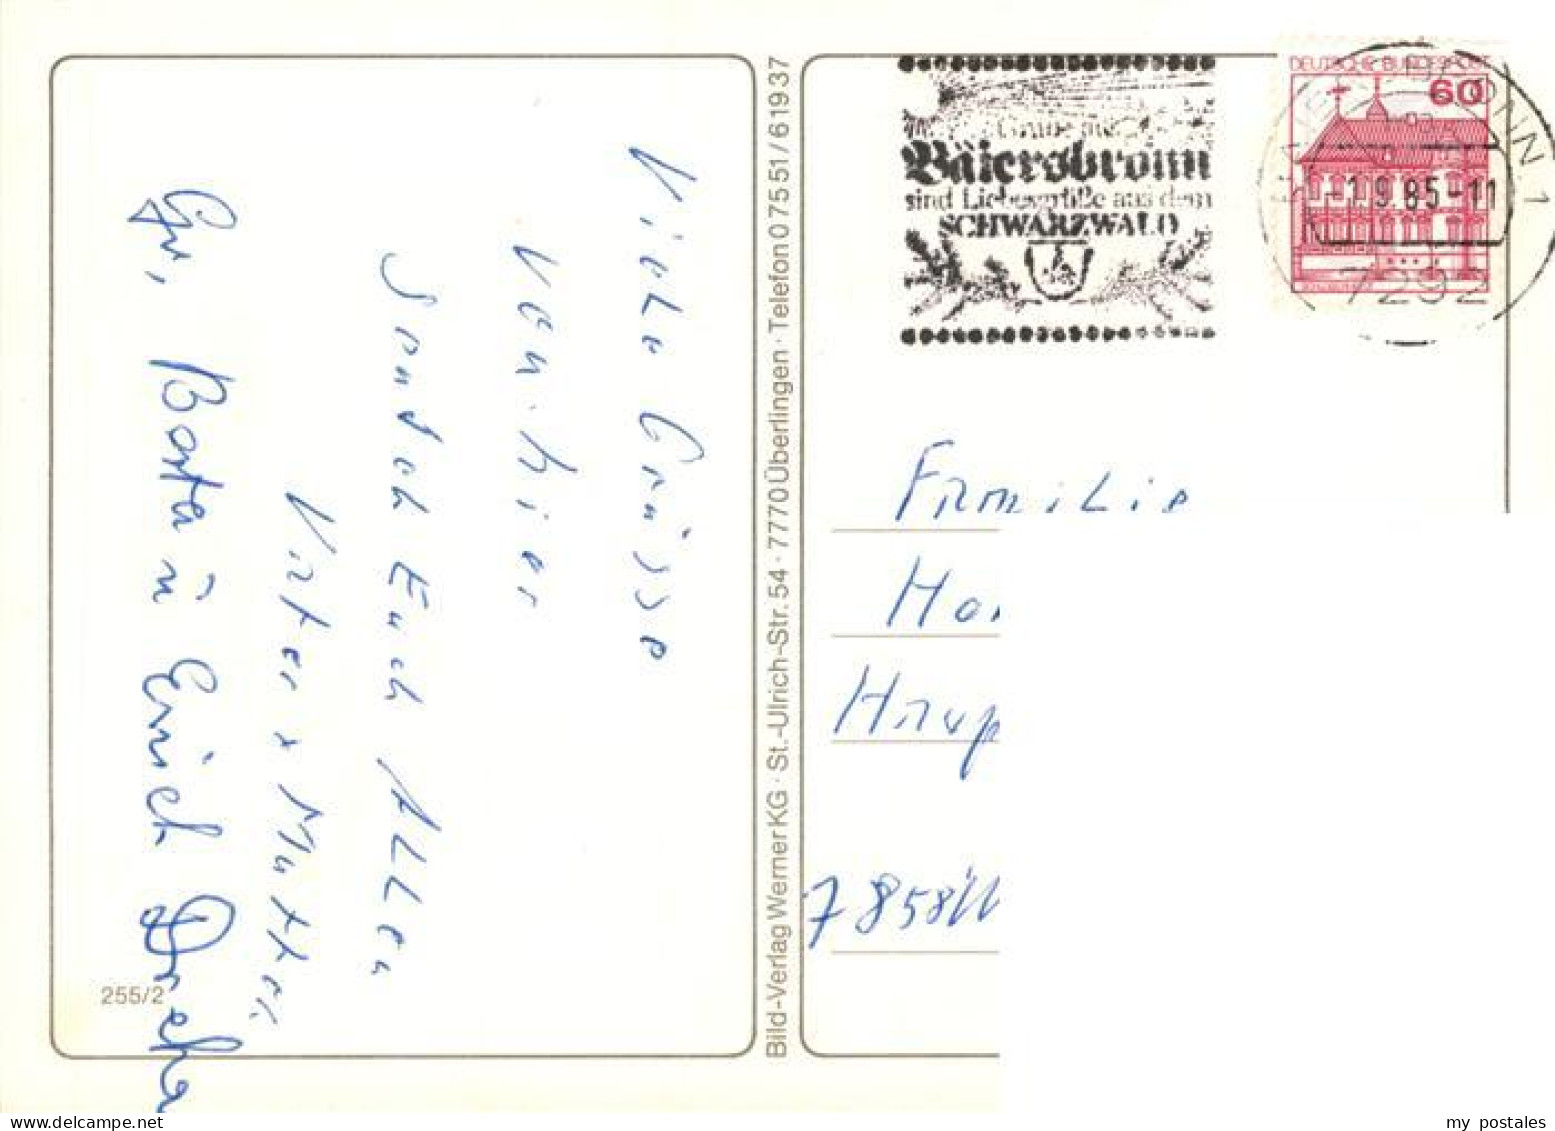 Viele Grüsse
von hier
Sendet Euch Allen
Vater & Mutter.
Gr, Berta u Erich
255/2
Bild-Verlag Werner KG · St.-Ulrich-Str. 54 · 7770 Überlingen · Telefon 0 75 51 / 6 19 37
Grüße aus
Baiersbronn
sind Liebesgrüße aus dem
SCHWARZWALD
DEUTSCHE BUNDESPOST
60
BAIERSBRONN 1
-1.9.85-11
7292
Familie
Ho
Haup
7858 W
my postales